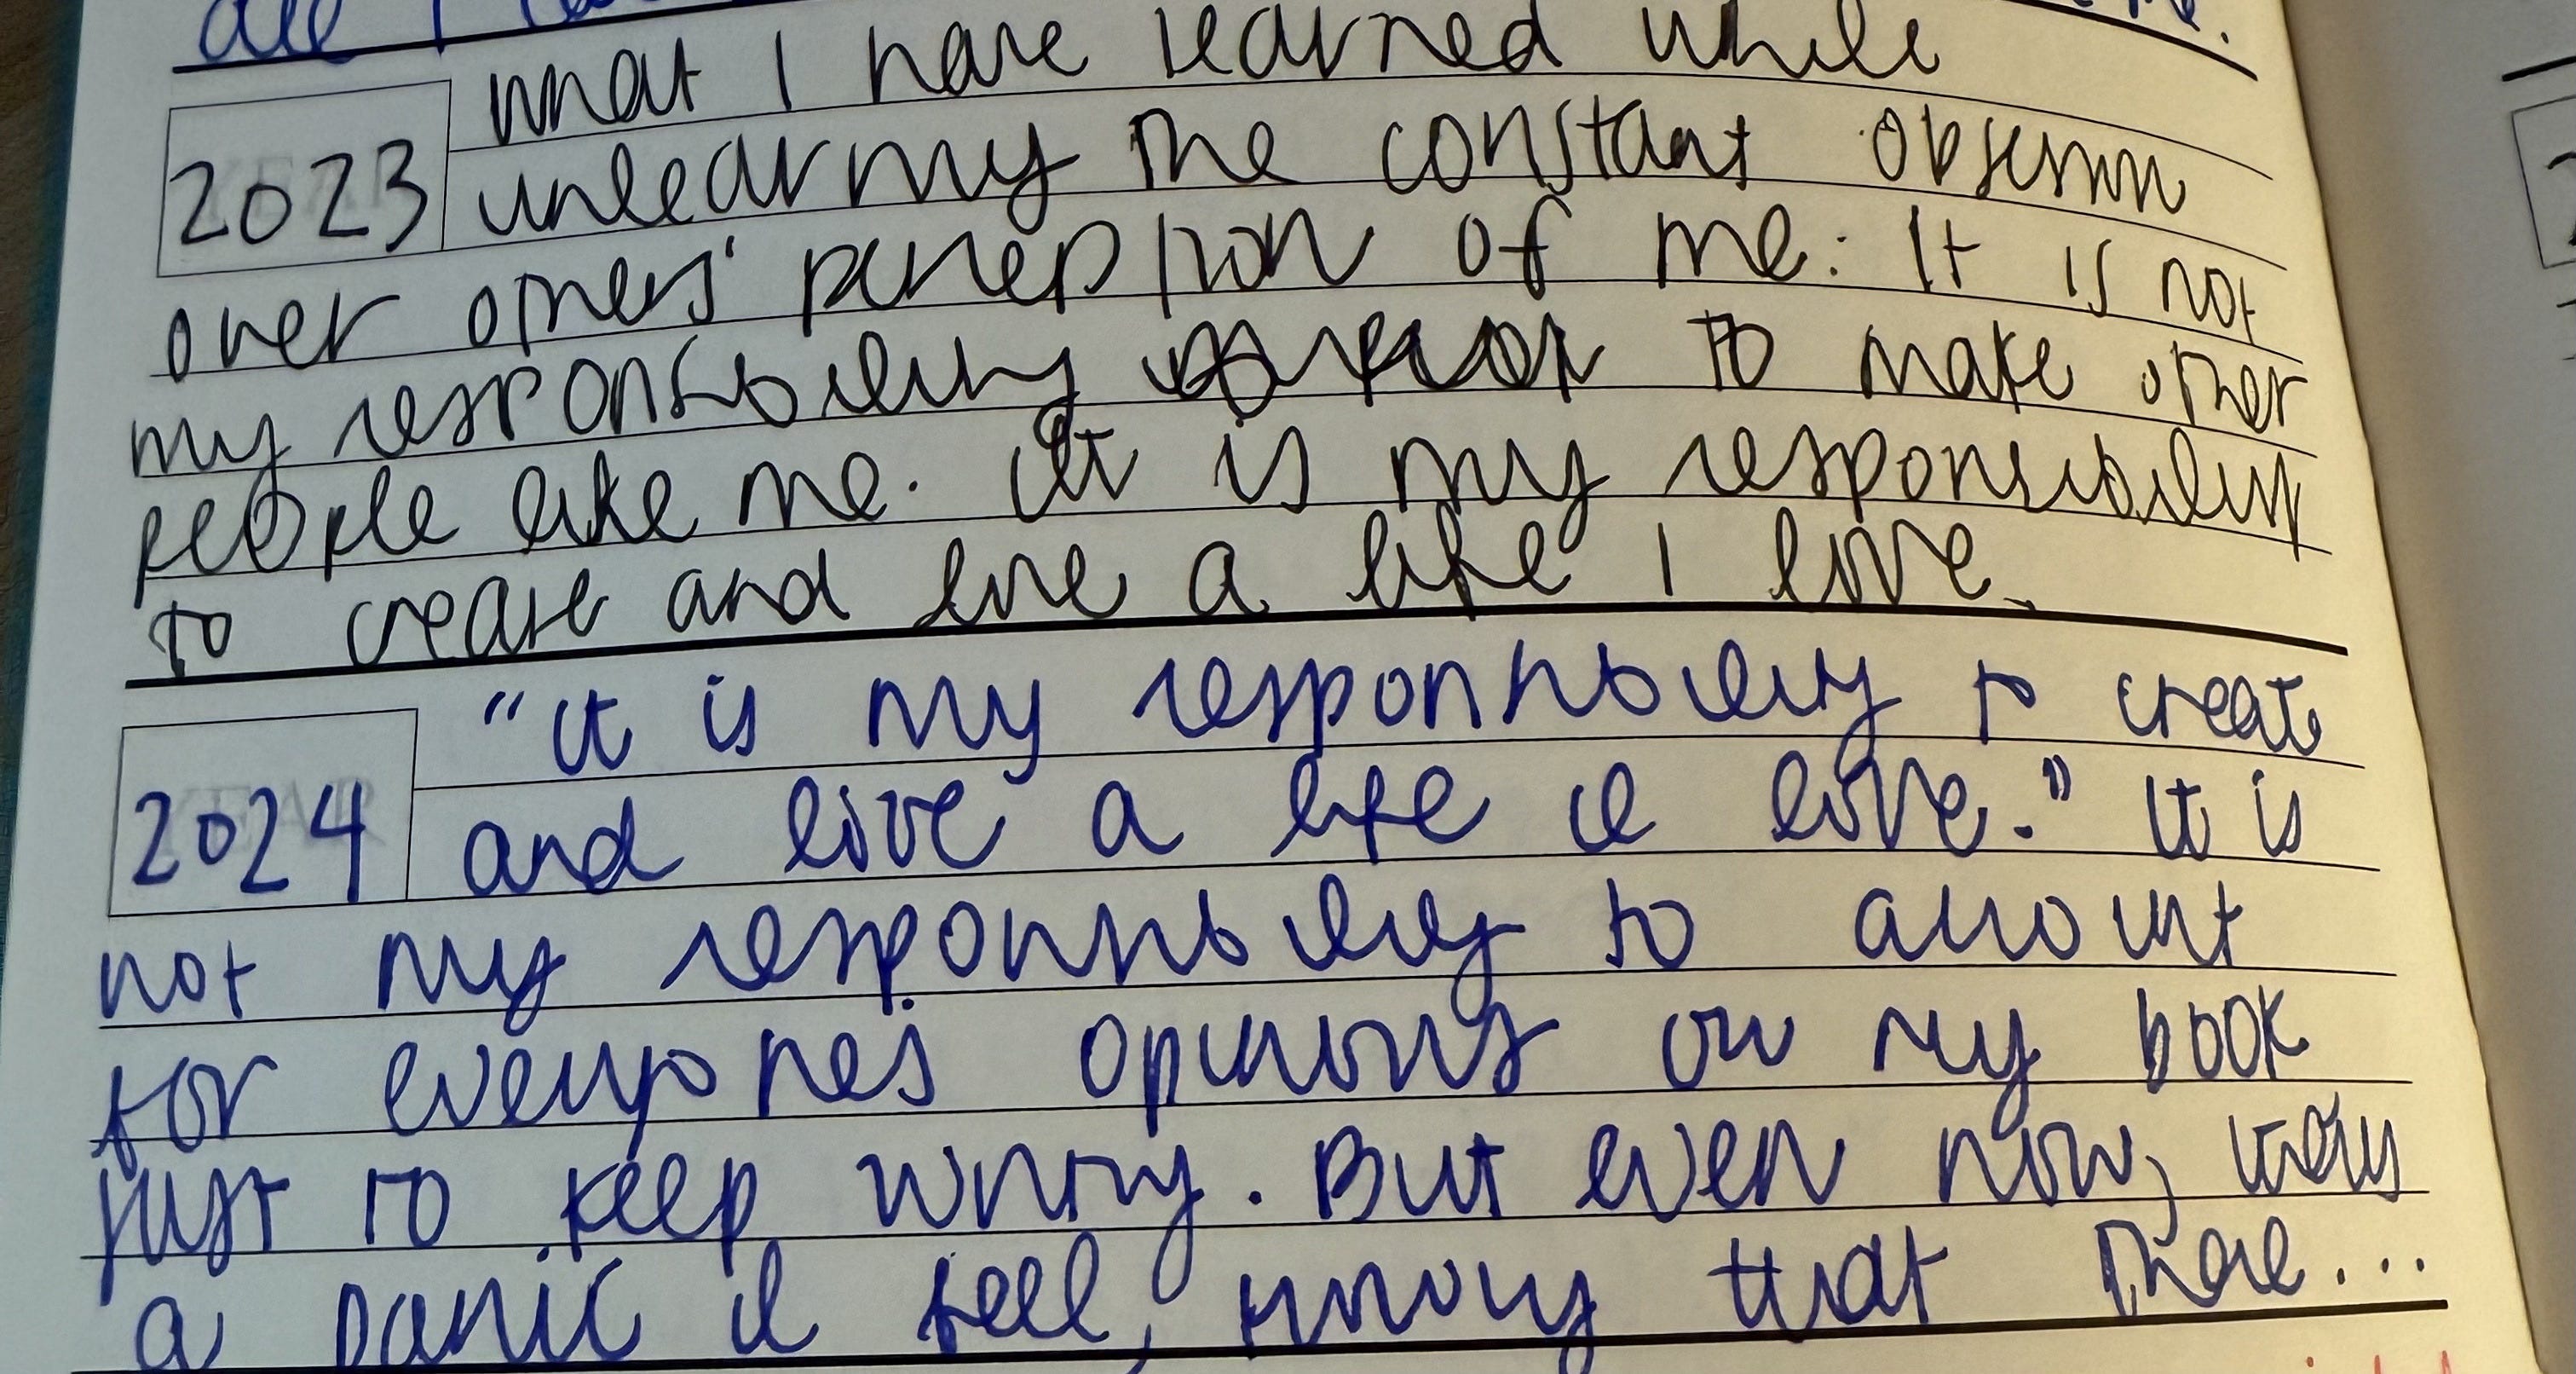 all I
2023 What I have learned while
unlearning the constant obsession
over others' perception of me: It is not
my responsibility to make other
people like me. It is my responsibility
to create and live a life I love.
2024 "It is my responsibility to create
and live a life I love." It is
not my responsibility to account
for everyone's opinions on my book
just to keep writing. But even now,
a panic I feel, knowing that there...